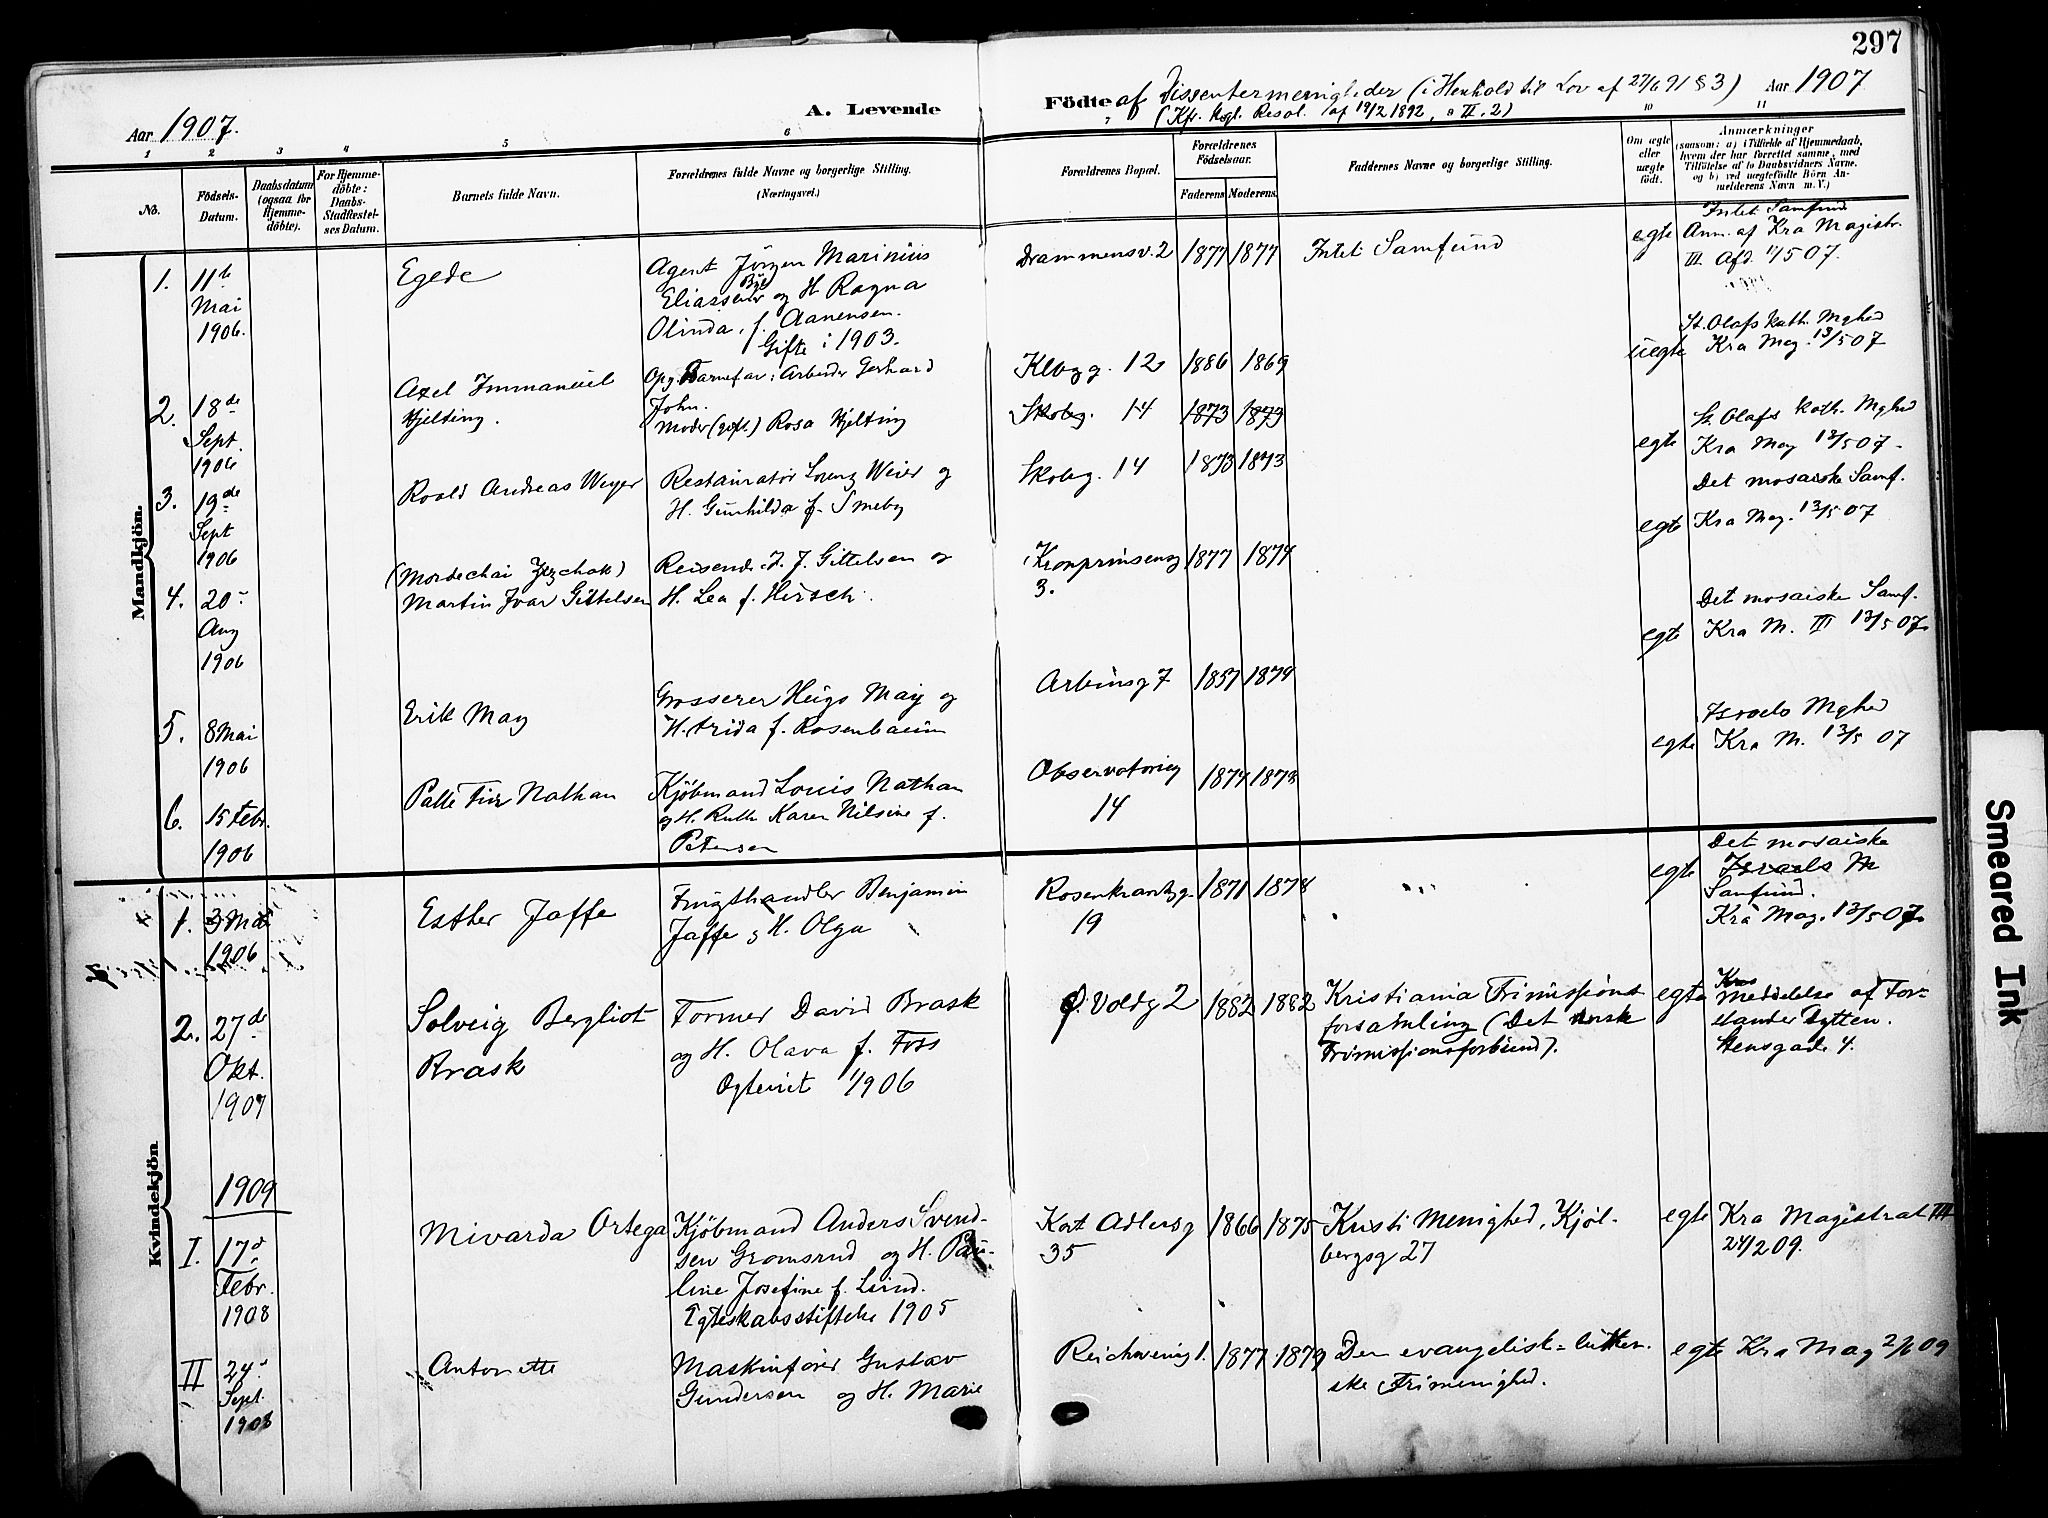 297
Aar 1907.
A. Levende
Födte af Dissentermenigheder (i Henhold til Lov af 27/6 91 § 3) Aar 1907
(Kfr. kgl. Resol. af 19/2 1892, II. 2)
1 2 3 4 5 6 7 10 11
No.
Födsels-
Datum.
Daabsdatum
(ogsaa for
Hjemme-
döbte).
For Hjemme-
döbte:
Daabs-
Stadfæstel-
ses Datum.
Barnets fulde Navn.
Forældrenes fulde Navne og borgerlige Stilling.
(Næringsvei.)
Forældrenes Bopæl.
Forældrenes
Födselsaar.
Faderens Moderens.
Faddernes Navne og borgerlige Stilling.
Om ægte
eller
uægte
født.
Anmærkninger
(saasom: a) i Tilfælde af Hjemmedaab,
hvem der har forrettet samme, med
Tilföielse af to Daabsvidners Navne,
og b) ved uægtefödte Börn An-
melderens Navn m. V.)
Mandkjön.
1. 11te
Mai
1906.
Egede
Agent Jörgen Marinius
Bye
Eliassen og H. Ragna
Olinda, f. Aanensen.
Gifte i 1903.
Drammensv. 2 1877 1877 Intet Samfund
egte
Intet Samfund
Anm. af Kra Magistr.
III. Afd. 11/5 07.
2. 18de
Sept.
1906
Axel Immanuel
Hjelting.
Opg. Barnefar: Arbeider Gerhard
John.
Moder (gift.) Rosa Hjelting
Klbgg. 12 1886 1869
uegte
St. Olafs kath. Mghed
Kra Mag. 13/5 07
Skobg. 14 1873 1879
3. 19de
Sept
1906
Roald Andreas Weyer
Restauratør Lorenz Weier og
H. Gunhilda f. Smeby
Skobg. 14 1873 1873
egte
St. Olafs kath. Mghed
Kra Mag 13/5 07.
4. 20-
Aug
1906
(Mordechai Jezchak)
Martin Ivar Gittelsen
Reisende J. J. Gittelsen og
H. Lea f. Hirsch.
Kronprinsensg
3.
1877 1874
egte
Det mosaiske Samf.
Kra Mag. 13/5 07
5. 8 Mai
1906
Erik May
Grosserer Hugo May og
H. Frida f. Rosenbaum
Arbinsg 7 1857 1879
egte
Det mosaiske Samf.
Kra M. III 13/5 07.
6. 15 Febr.
1906
Palle Finn Nathan
Kjöbmand Louis Nathan
og H. Ruth Karen Nilsine f.
Petersen
Observatorieg
14
1877 1873
egte
Israels Mghed
Kra M. 13/5 07
Kvindekjön
1. 3 Mai
1906
Esther Jaffe
Frugthandler Benjamin
Jaffe og H. Olga
Rosenkrantzg.
19
1871 1878
egte
Det mosaiske
Israels M
Samfund.
Kra Mag. 13/5 07.
2. 27de
Okt.
1907
Solveig Bergliot
Brask
Former David Brask
og H. Olava f. Foss
Ogteviet 1/906
f. Voldg 2 1882 1882
Kristiania Frimissions
forsamling (Det norsk
Frimissionsforbund).
egte
Meddelelse af For-
stander Dytten.
Stensgade 4.
1909
I. 17d
Febr.
1908
Mivarda Ortega
Kjöbmand Anders Svend-
sen Gromsrud og H. Pau-
line Josefine f. Lund.
Egteskabsstiftelse 1905
Kort Adlersg
35
1866 1875
Kristi Menighed, Kjöl-
bergsg 27
egte
Kra Magistrat III
24/2 09.
II 24-
Sept.
1908
Antonette
Maskinfører Gustav
Gundersen og H. Marie
Reichweing 1. 1877 1879
Den evangelisk-luther-
ske Frimenighed.
egte Kra Mag 2/6 09
Smeared Ink